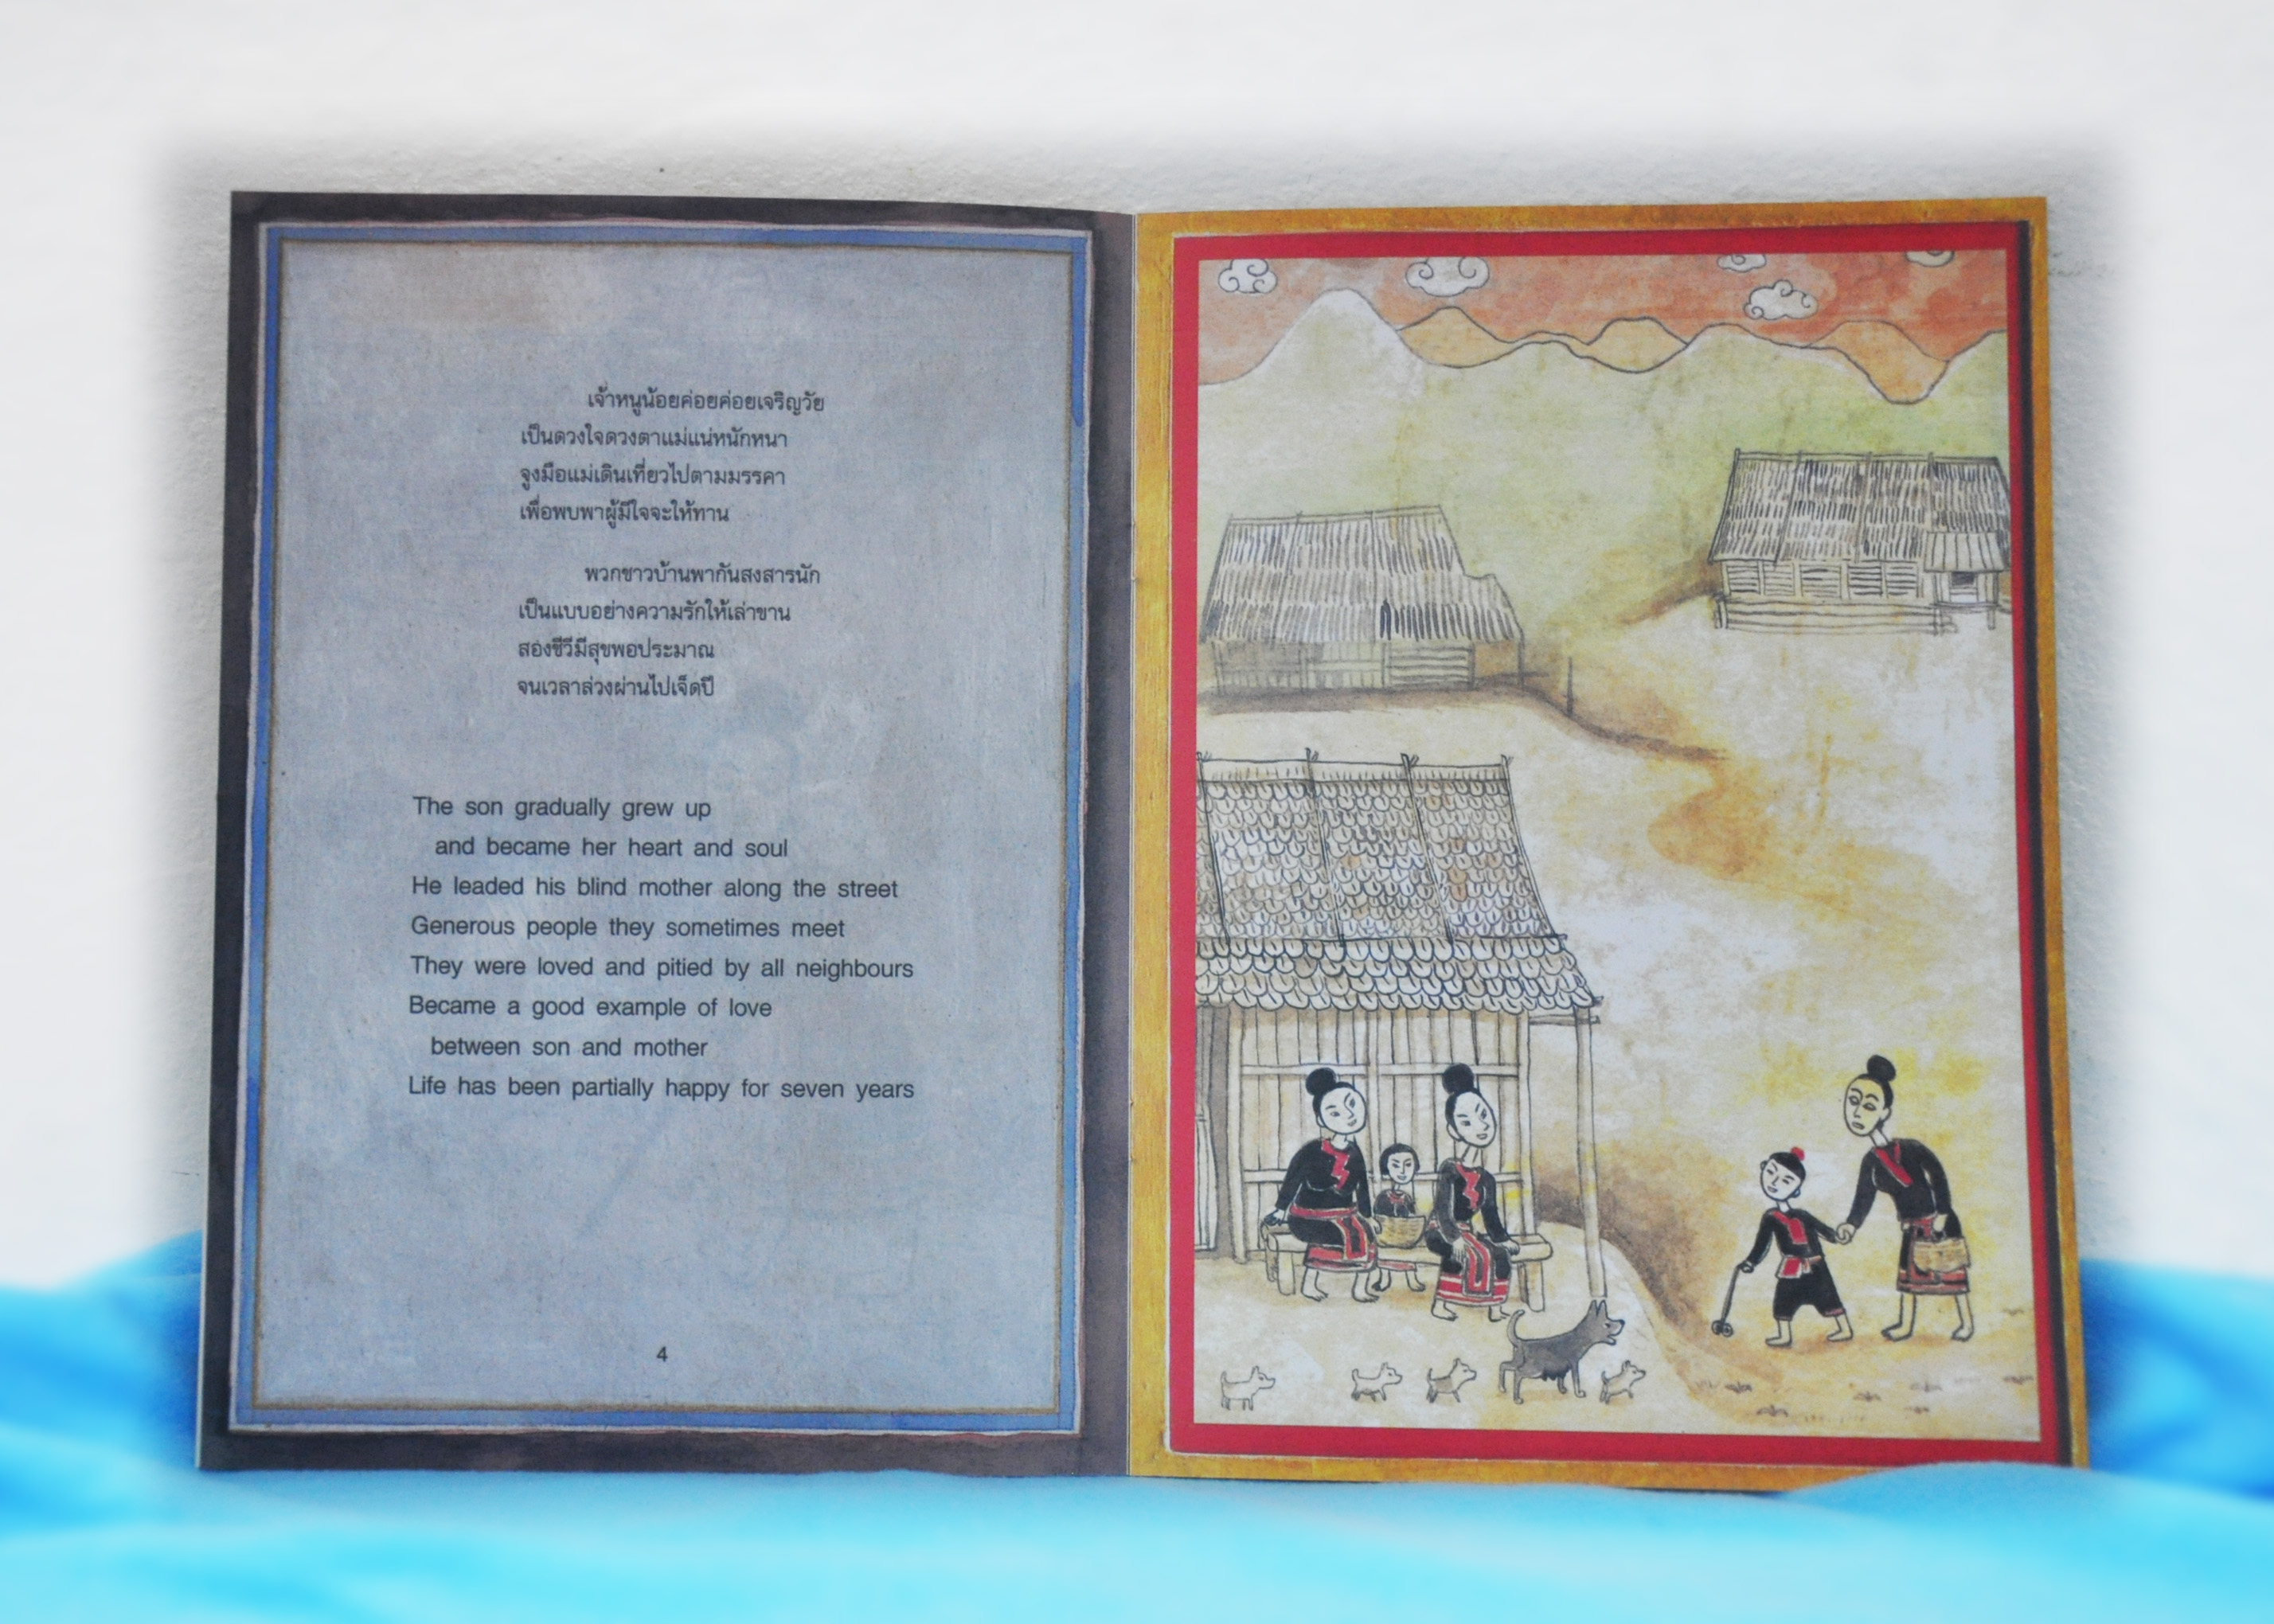 เจ้าหนูน้อยค่อยค่อยเจริญวัย
เป็นดวงใจดวงตาแม่แน่หนักหนา
จูงมือแม่เดินเที่ยวไปตามมรรคา
เพื่อพบพาผู้มีใจจะให้ทาน
พวกชาวบ้านพากันสงสารนัก
เป็นแบบอย่างความรักให้เล่าขาน
สองชีวีมีสุขพอประมาณ
จนเวลาล่วงผ่านไปเจ็ดปี
The son gradually grew up
and became her heart and soul
He leaded his blind mother along the street
Generous people they sometimes meet
They were loved and pitied by all neighbours
Became a good example of love
between son and mother
Life has been partially happy for seven years
4